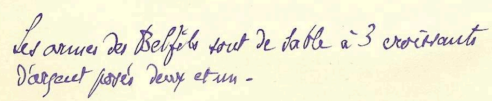 Les armes des Belfils sont de sable à 3 croissants
d'argent posés deux et un -